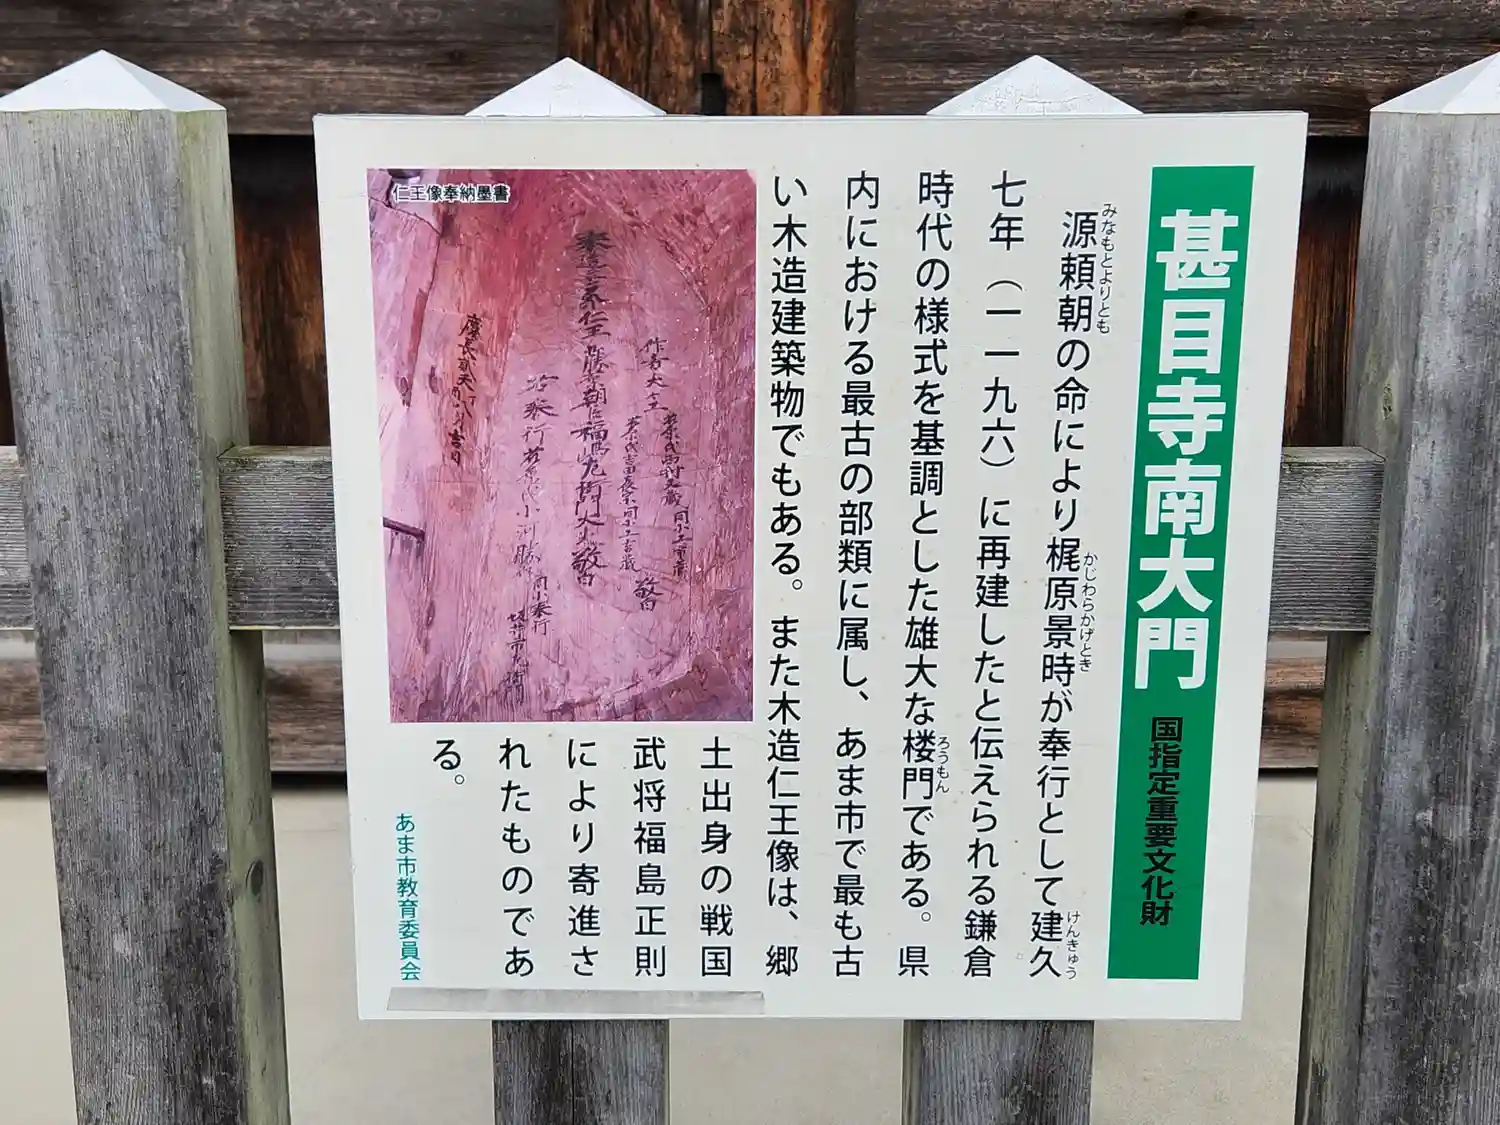 甚目寺南大門 国指定重要文化財
源頼朝の命により梶原景時が奉行として建久
みなもとよりとも
かじわらかげとき
けんきゅう
七年（一一九六）に再建したと伝えられる鎌倉
時代の様式を基調とした雄大な楼門である。県
ろうもん
内における最古の部類に属し、あま市で最も古
い木造建築物でもある。また木造仁王像は、郷
土出身の戦国
武将福島正則
により寄進さ
れたものであ
る。
あま市教育委員会
仁王像奉納墨書